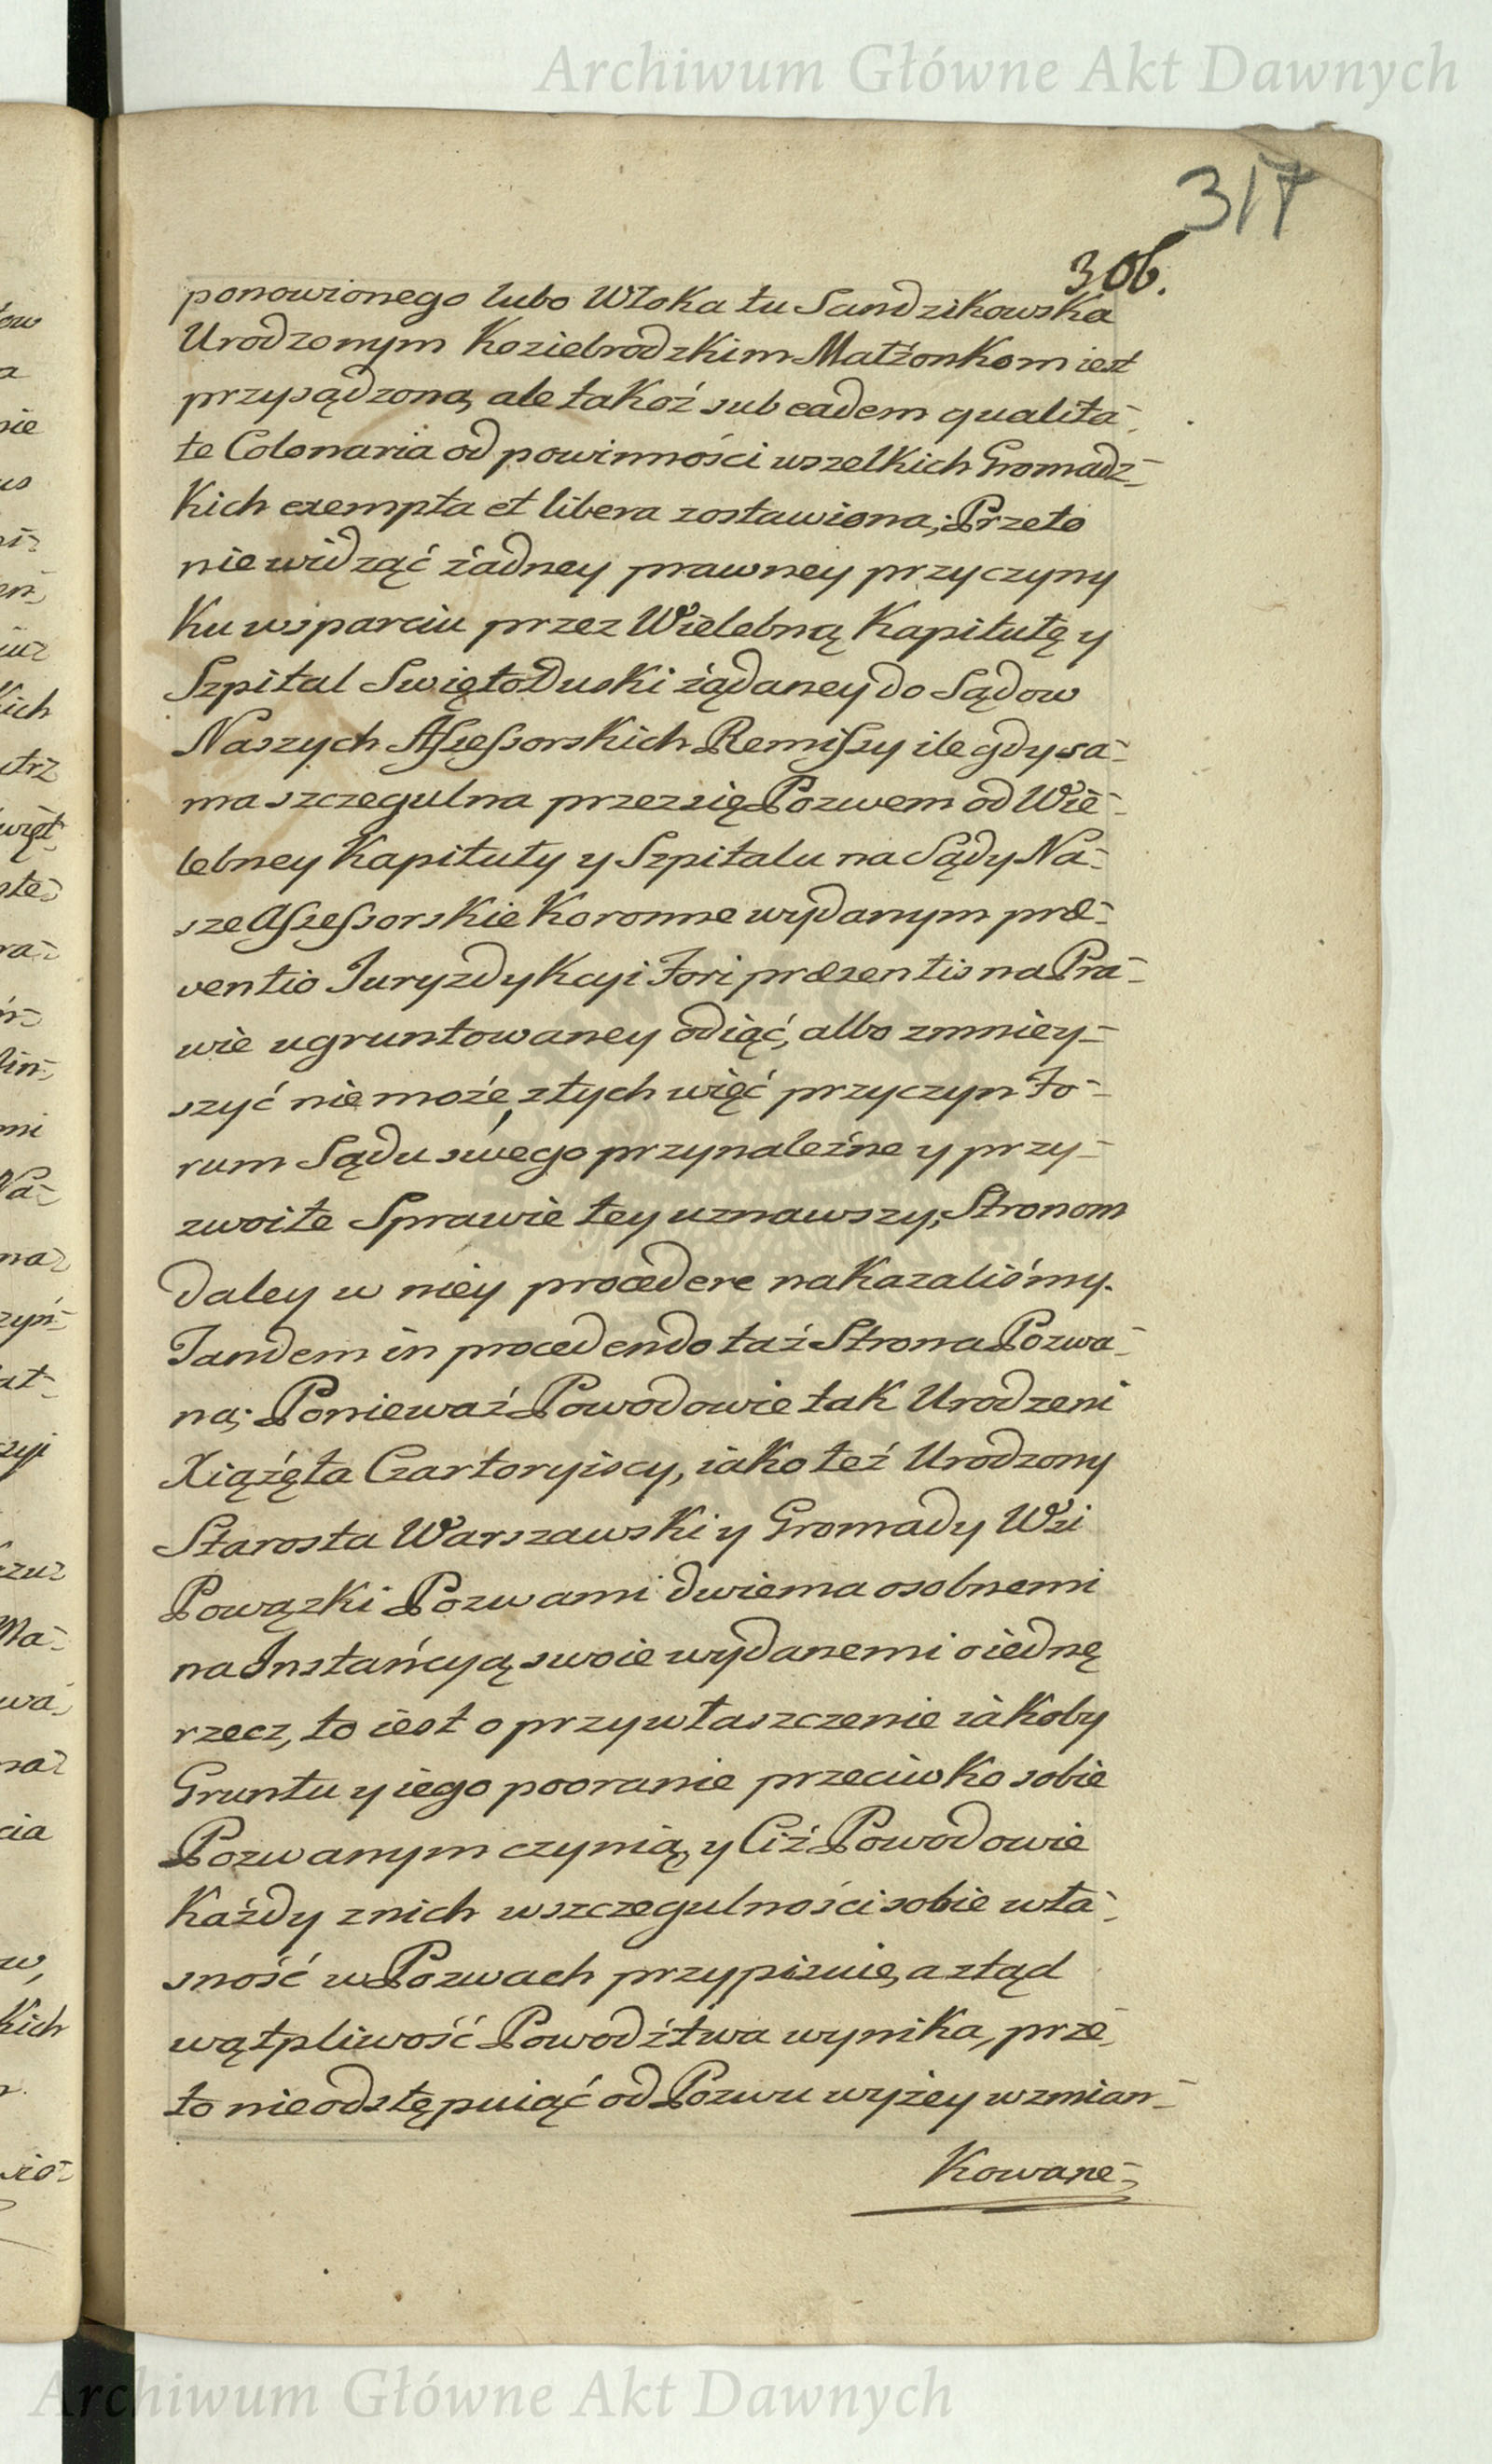 Archiwum Główne Akt Dawnych
317
306.
ponowionego lubo Włoka tu Sandzikowska
Urodzonym Koziebrodzkim Małżonkom iest
przysądzona, ale takoż sub eadem qualita-
te Colonaria od powinności wszelkich Gromadz-
kich exempta et libera zostawiona; Przeto
nie widząć żadney prawney przyczyny
Ku wsparciu przez Wielebną Kapitułę y
Szpital Swięto Duski żądaney do Sądow
Naszych Assessorskich Remissy ile gdy sa-
ma szczegulna przez się Pozwem od Wie-
lebney Kapituły y Szpitalu na Sądy Na-
sze Assessorskie Koronne wydanym præ-
ventio Juryzdykcyi Fori præzentis na Pra-
wie ugruntowaney odiąć, albo zmniey-
szyć nie może, z tych więć przyczyn Fo-
rum Sądu swego przynależne y przy-
zwoite Sprawie tey uznawszy; Stronom
daley w niey procedere nakazaliśmy.
Tandem in procedendo taż Strona Pozwa-
na; Ponieważ Powodowie tak Urodzeni
Xiążęta Czartoryiscy, iako też Urodzony
Starosta Warszawski y Gromady Wsi
Powązki Pozwami dwiema osobnemi
na Instańcyą swoie wydanemi o iednę
rzecz, to iest o przywłaszczenie iakoby
Gruntu y iego pooranie przeciwko sobie
Pozwanym czynią, y Ciż Powodowie
Każdy z nich wszczegulności sobie wła-
sność w Pozwach przypisuie, a ztąd
wątpliwość Powodźtwa wynika, prze-
to nieodstępuiąć od Pozwu wyżey wzmian-
Kowane-
ow
a
nie
us
iuz
Kich
ctrz
więt-
ste-
ra-
mi
Na-
na-
at-
zyi
Ma-
wa-
na-
cia
w,
Kich
Archiwum Główne Akt Dawnych